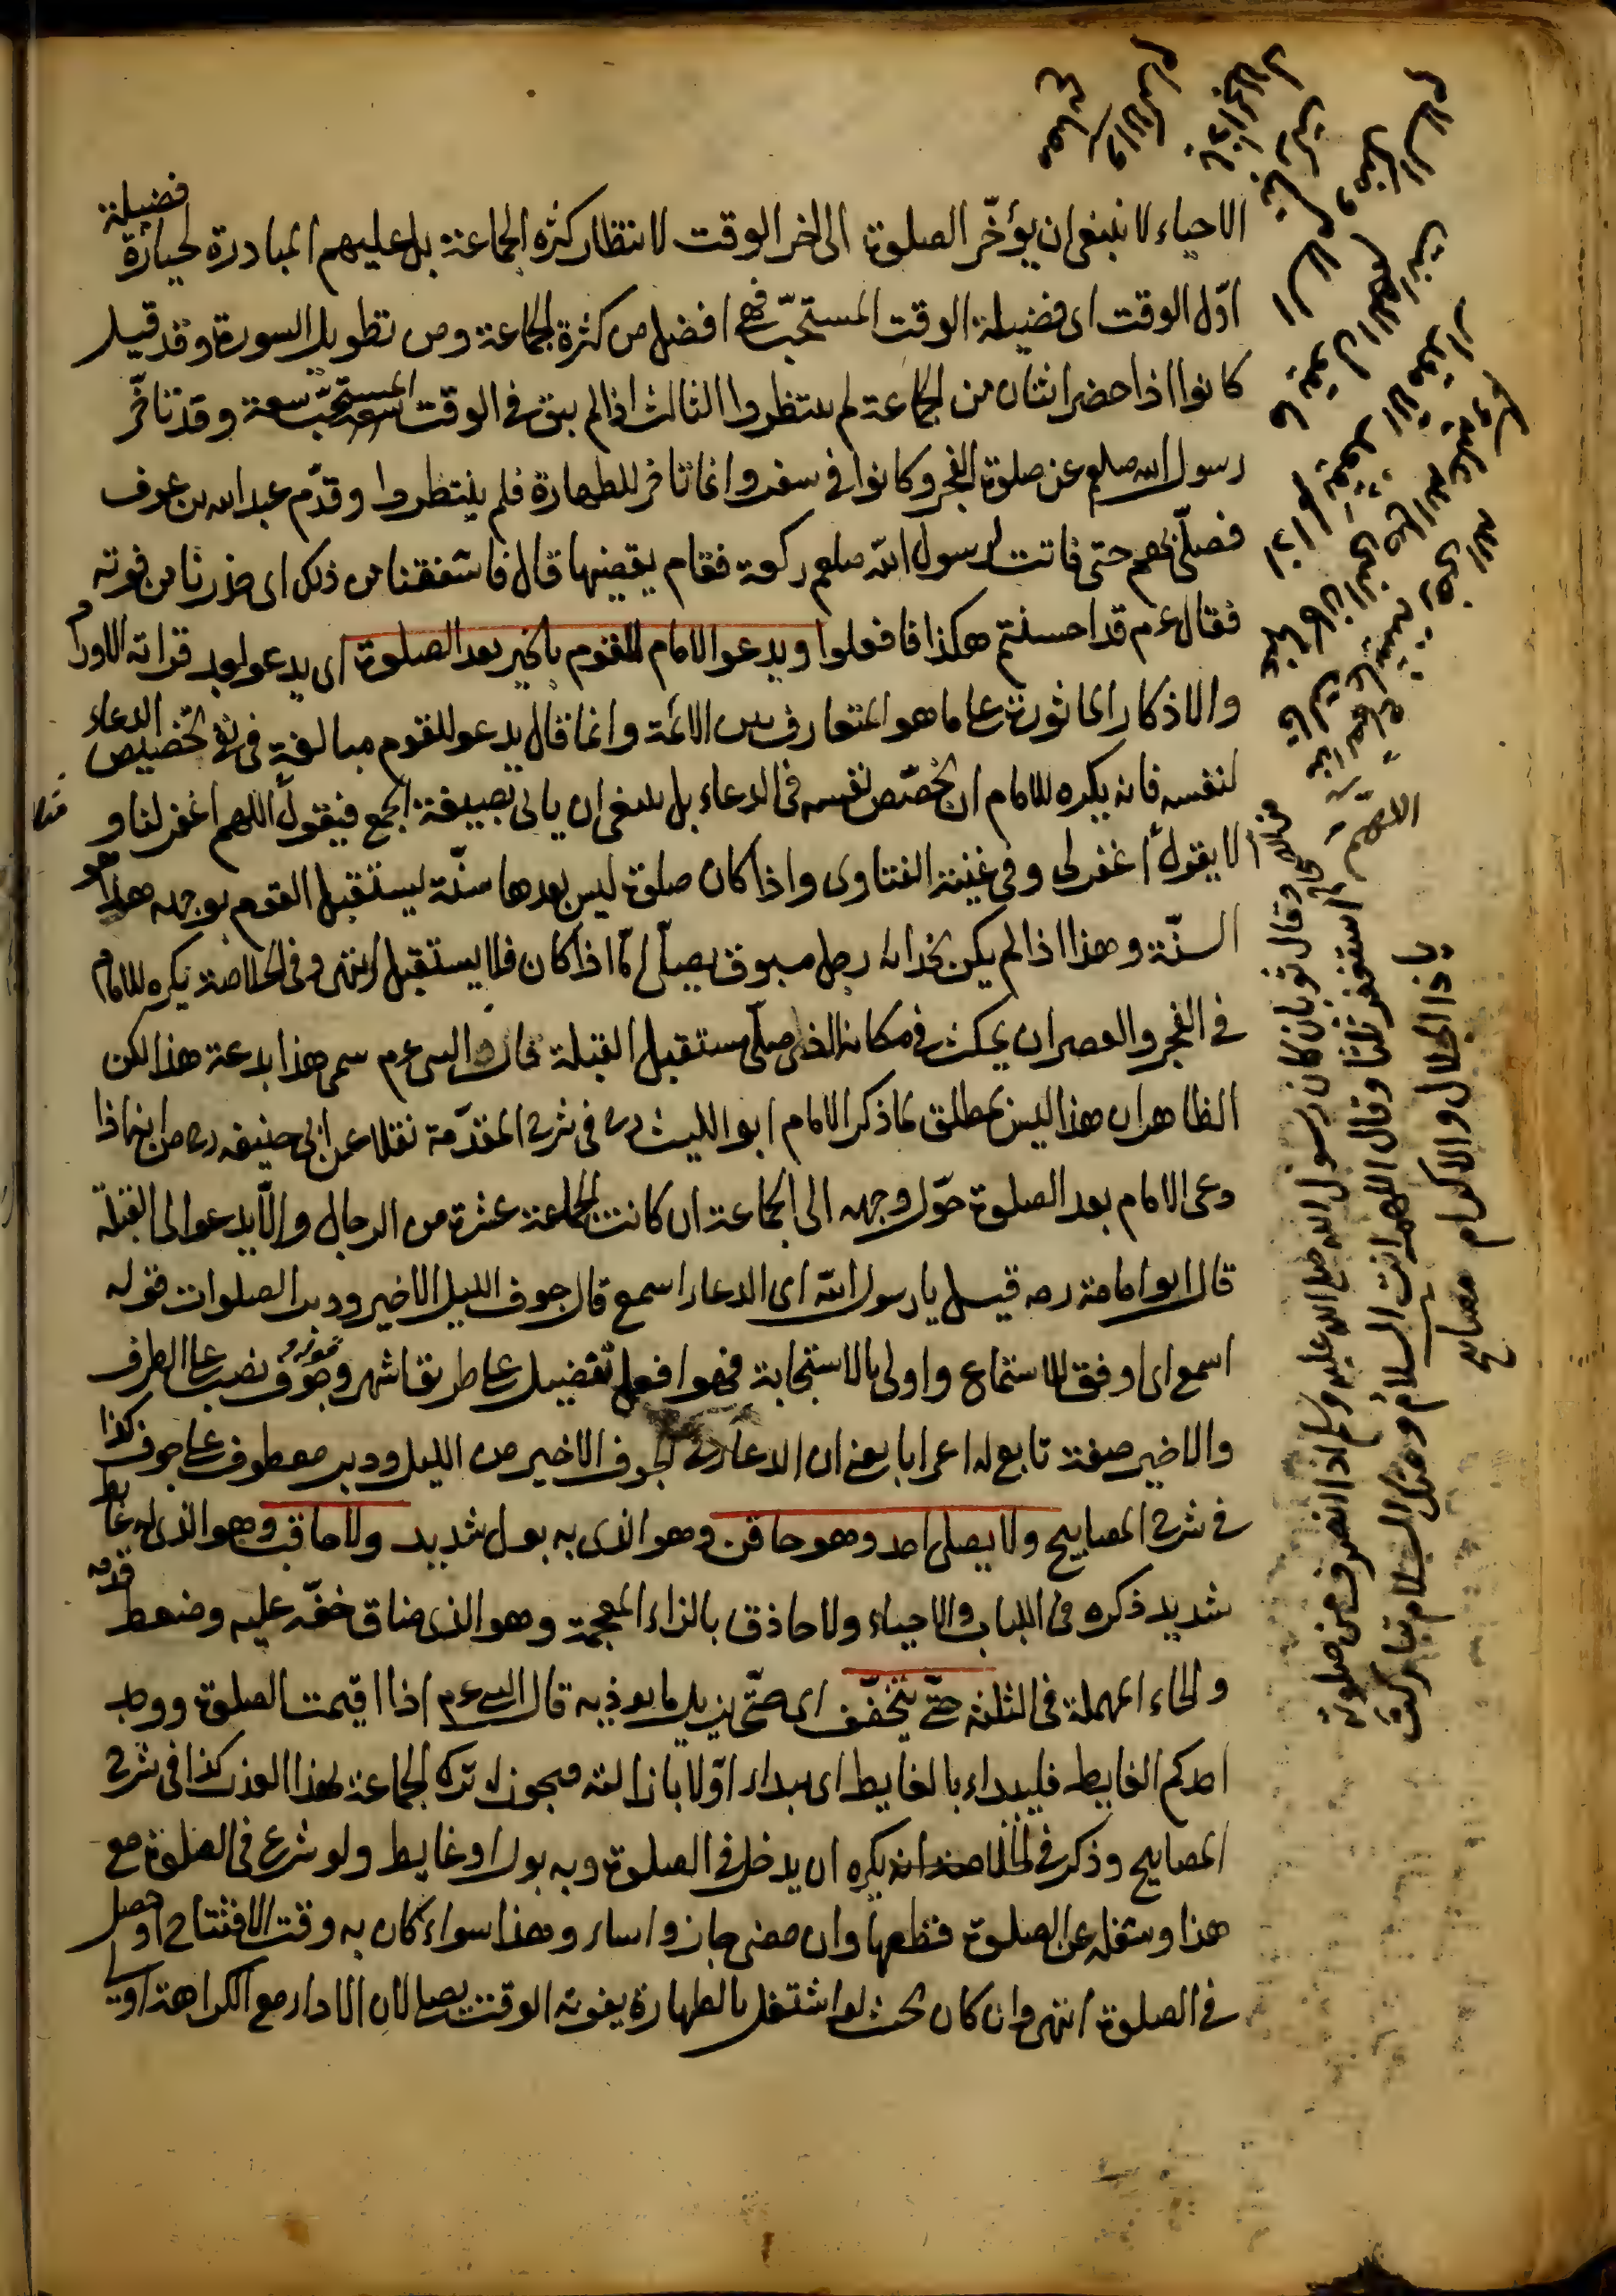 الاحياء لا ينبغى ان يؤخّر الصلوة الى اخر الوقت لانتظار كثرة الجماعة بل عليهم المبادرة لحيازة فضيلة
اوّل الوقت اى فضيلة الوقت المستحبّ فهى افضل من كثرة الجماعة ومن تطويل السورة وقد قيل
كانوا اذا حضر اثنان من الجماعة لم ينتظروا الثالث اذا لم يبق فى الوقت المستحبّ سعة وقد تأخّر
رسول الله صلعم عن صلوة الفجر وكانوا فى سفر وانما تأخر للطهارة فلم ينتظروا وقدّم عبد الله بن عوف
فصلّى بهم حتى فاتت لرسول الله صلعم ركعة فقام يقضيها قال فاشفقنا من ذلك اى حذرنا من فوته
فقال عم قد احسنتم هكذا فافعلوا ويدعو الامام للقوم بالخير بعد الصلوة اى يدعو بعد قراءة الاوراد
والاذكار المأثورة على ما هو المتعارف بين الائمة وانما قال يدعو للقوم مبالغة فى تخصيص الدعاء
لنفسه فانه يكره للامام ان يخصّص نفسه فى الدعاء بل ينبغى ان يأتى بصيغة الجمع فيقول اللهم اغفر لنا و
لا يقول اغفر لى وفى غنية الفتاوى واذا كان صلوة ليس بعدها سنّة يستقبل القوم بوجهه هذا هو
السنّة وهذا اذا لم يكن بحذائه رجل مسبوق يصلّى امّا اذا كان فلا يستقبل انتهى وفى الخلاصة يكره للامام
فى الفجر والعصر ان يمكث فى مكانه الذى صلّى مستقبل القبلة قال والنبى عم سمى هذا بدعة هذا لكن
الظاهر ان هذا ليس بمطلق لما ذكر الامام ابو الليث ره فى شرح المقدّمة نقلا عن ابى حنيفه ره من انه اذا
دعى الامام بعد الصلوة حوّل وجهه الى الجماعة ان كانت الجماعة عشرة من الرجال والّا يدعو الى القبلة
قال ابو امامة رضه قيل يا رسول الله اى الدعاء اسمع قال جوف الليل الاخير ودبر الصلوات قوله
اسمع اى اوفق للاستماع واولى بالاستجابة فهو افعل تفضيل على طريق اشهر وجوف نصب على الظرف
والاخير صفة تابع له اعرابا يعنى ان الدعاء فى الجوف الاخير من الليل ودبر معطوف على جوف كذا
فى شرح المصابيح ولا يصلى احد وهو حاقن وهو الذى به بول شديد ولا حاقب وهو الذى له غايط
شديد ذكره فى اللباب والاحياء ولا حاذق بالزاء المعجمة وهو الذى ضاق خفّه عليه وضغط قدمه
والحاء المهملة فى الثلثة حتّى يتخفّف اى حتّى يزيل ما يوذيه قال النبى عم اذا اقيمت الصلوة ووجد
احدكم الغايط فليبداء بالغايط اى يبداء اوّلا بازالته فيجوز له ترك الجماعة لهذا العذر كذا فى شرح
المصابيح وذكر فى الخلاصة انه يكره ان يدخل فى الصلوة وبه بول او غايط ولو شرع فى الصلوة مع
هذا وشغله عن الصلوة قطعها وان مضى جاز واساء وهذا سواء كان به وقت الافتتاح او حصل
فى الصلوة انتهى وان كان بحيث لو اشتغل بالطهارة يفوته الوقت يصلى لان الاداء مع الكراهة اولى
وقال ثوبان كان رسول الله صلى الله عليه وسلم اذا انصرف من صلوته
استغفر ثلثا وقال اللهم انت السلام ومنك السلام تباركت
يا ذا الجلال والاكرام مصابيح